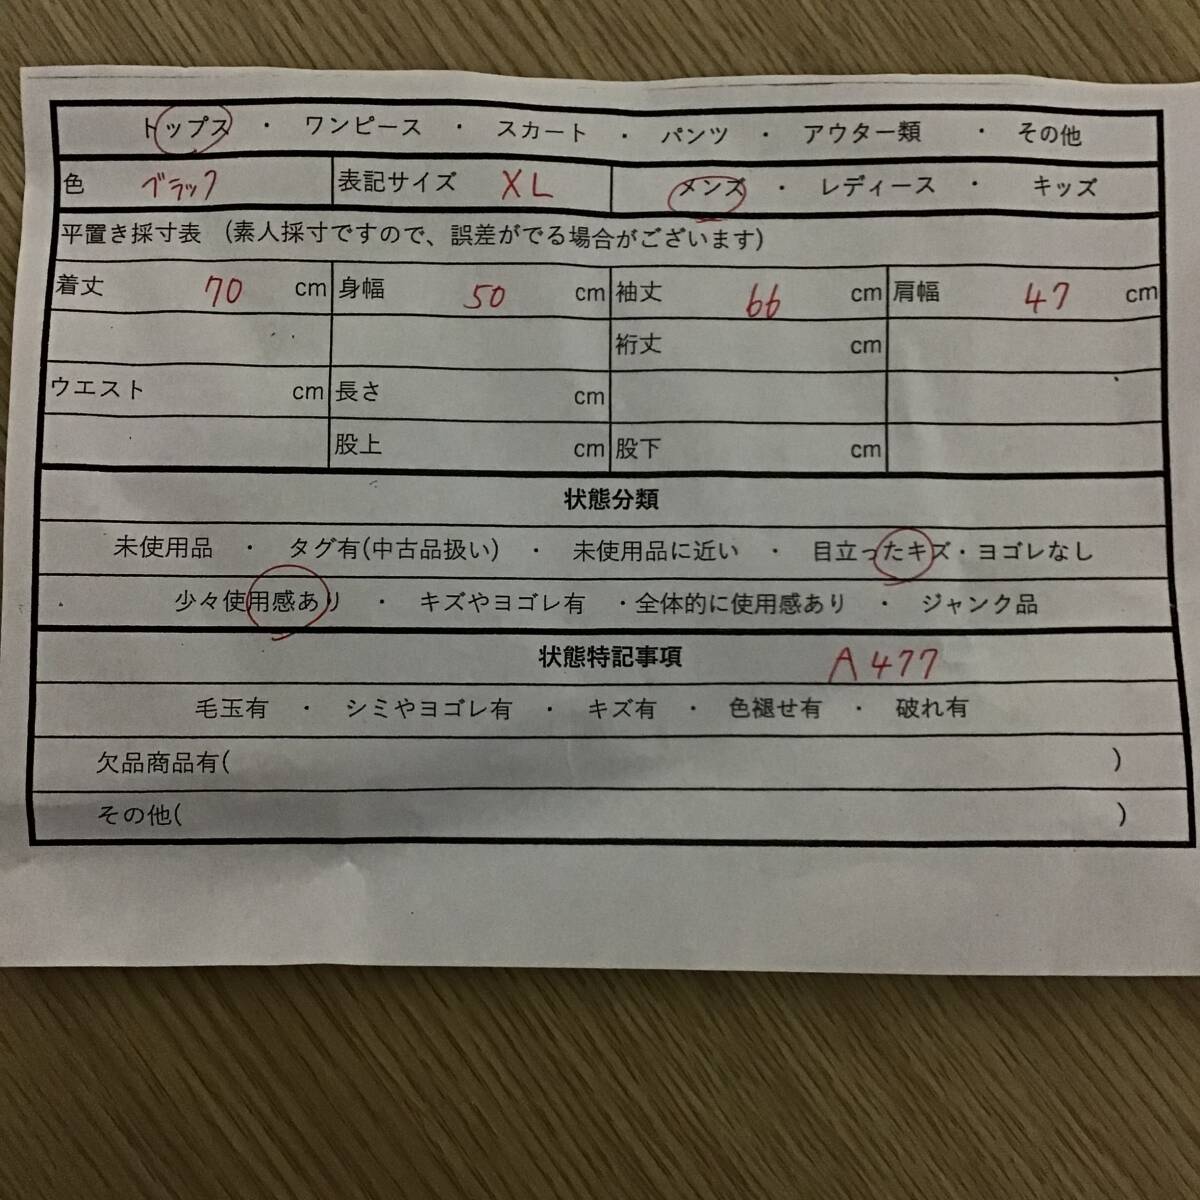 トップス ・ ワンピース ・ スカート ・ パンツ ・ アウター類 ・ その他
色 ブラック 表記サイズ XL メンズ ・ レディース ・ キッズ
平置き採寸表 (素人採寸ですので、誤差がでる場合がございます)
着丈 70 cm 身幅 50 cm 袖丈 66 cm 肩幅 47 cm
裄丈 cm
ウエスト cm 長さ cm
股上 cm 股下 cm
状態分類
未使用品 ・ タグ有(中古品扱い) ・ 未使用品に近い ・ 目立ったキズ・ヨゴレなし
少々使用感あり ・ キズやヨゴレ有 ・全体的に使用感あり ・ ジャンク品
状態特記事項 A477
毛玉有 ・ シミやヨゴレ有 ・ キズ有 ・ 色褪せ有 ・ 破れ有
欠品商品有( )
その他( )